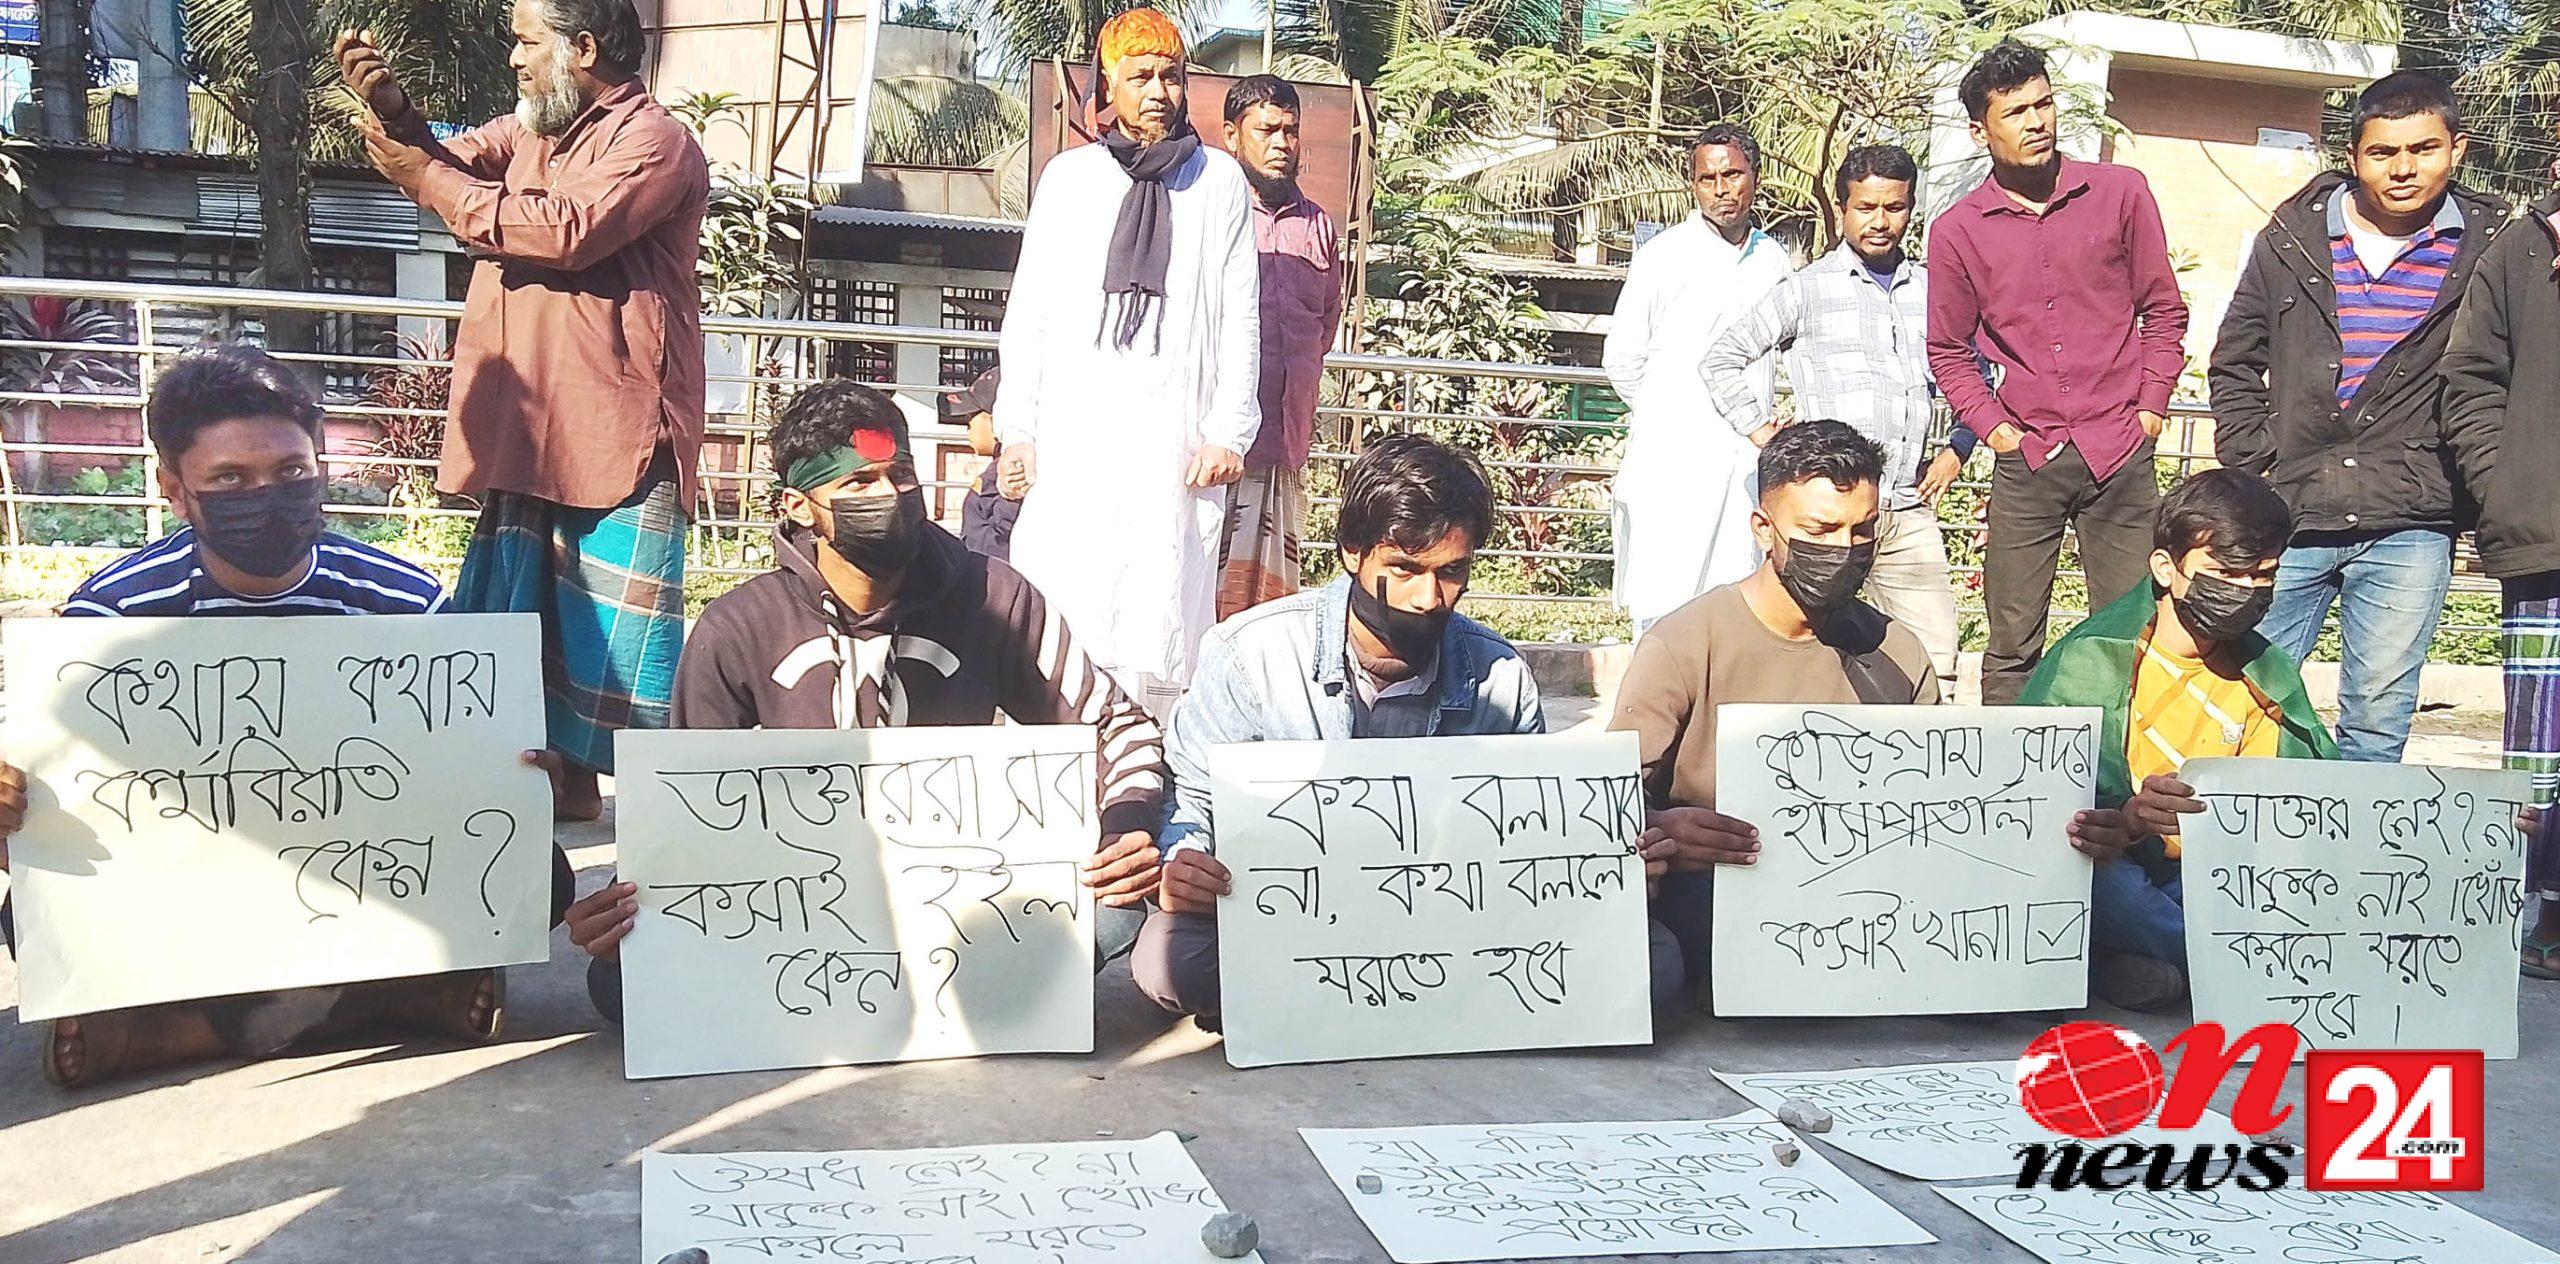 কথায় কথায়
কর্মবিরতি
কেন ?
ডাক্তাররা সব
কসাই হইল
কেন ?
কথা বলা যাবে
না, কথা বললে
মরতে হবে
কুড়িগ্রাম সদর
হাসপাতাল
কসাই খানা
ডাক্তার নেই? না
থাকুক নাই। খোঁজ
করলে মরতে
হবে।
ঔষধ নেই? না
থাকুক নাই। খোঁজ
করলে মরতে
যা বলি বা করি,
আমাকে মরতে
হবে, তাহলে
হাসপাতালের কী
প্রয়োজন?
নেই?
করলে
হে রাষ্ট্র, তোমার
সর্বাঙ্গে ব্যথা,
on
news 24 .com